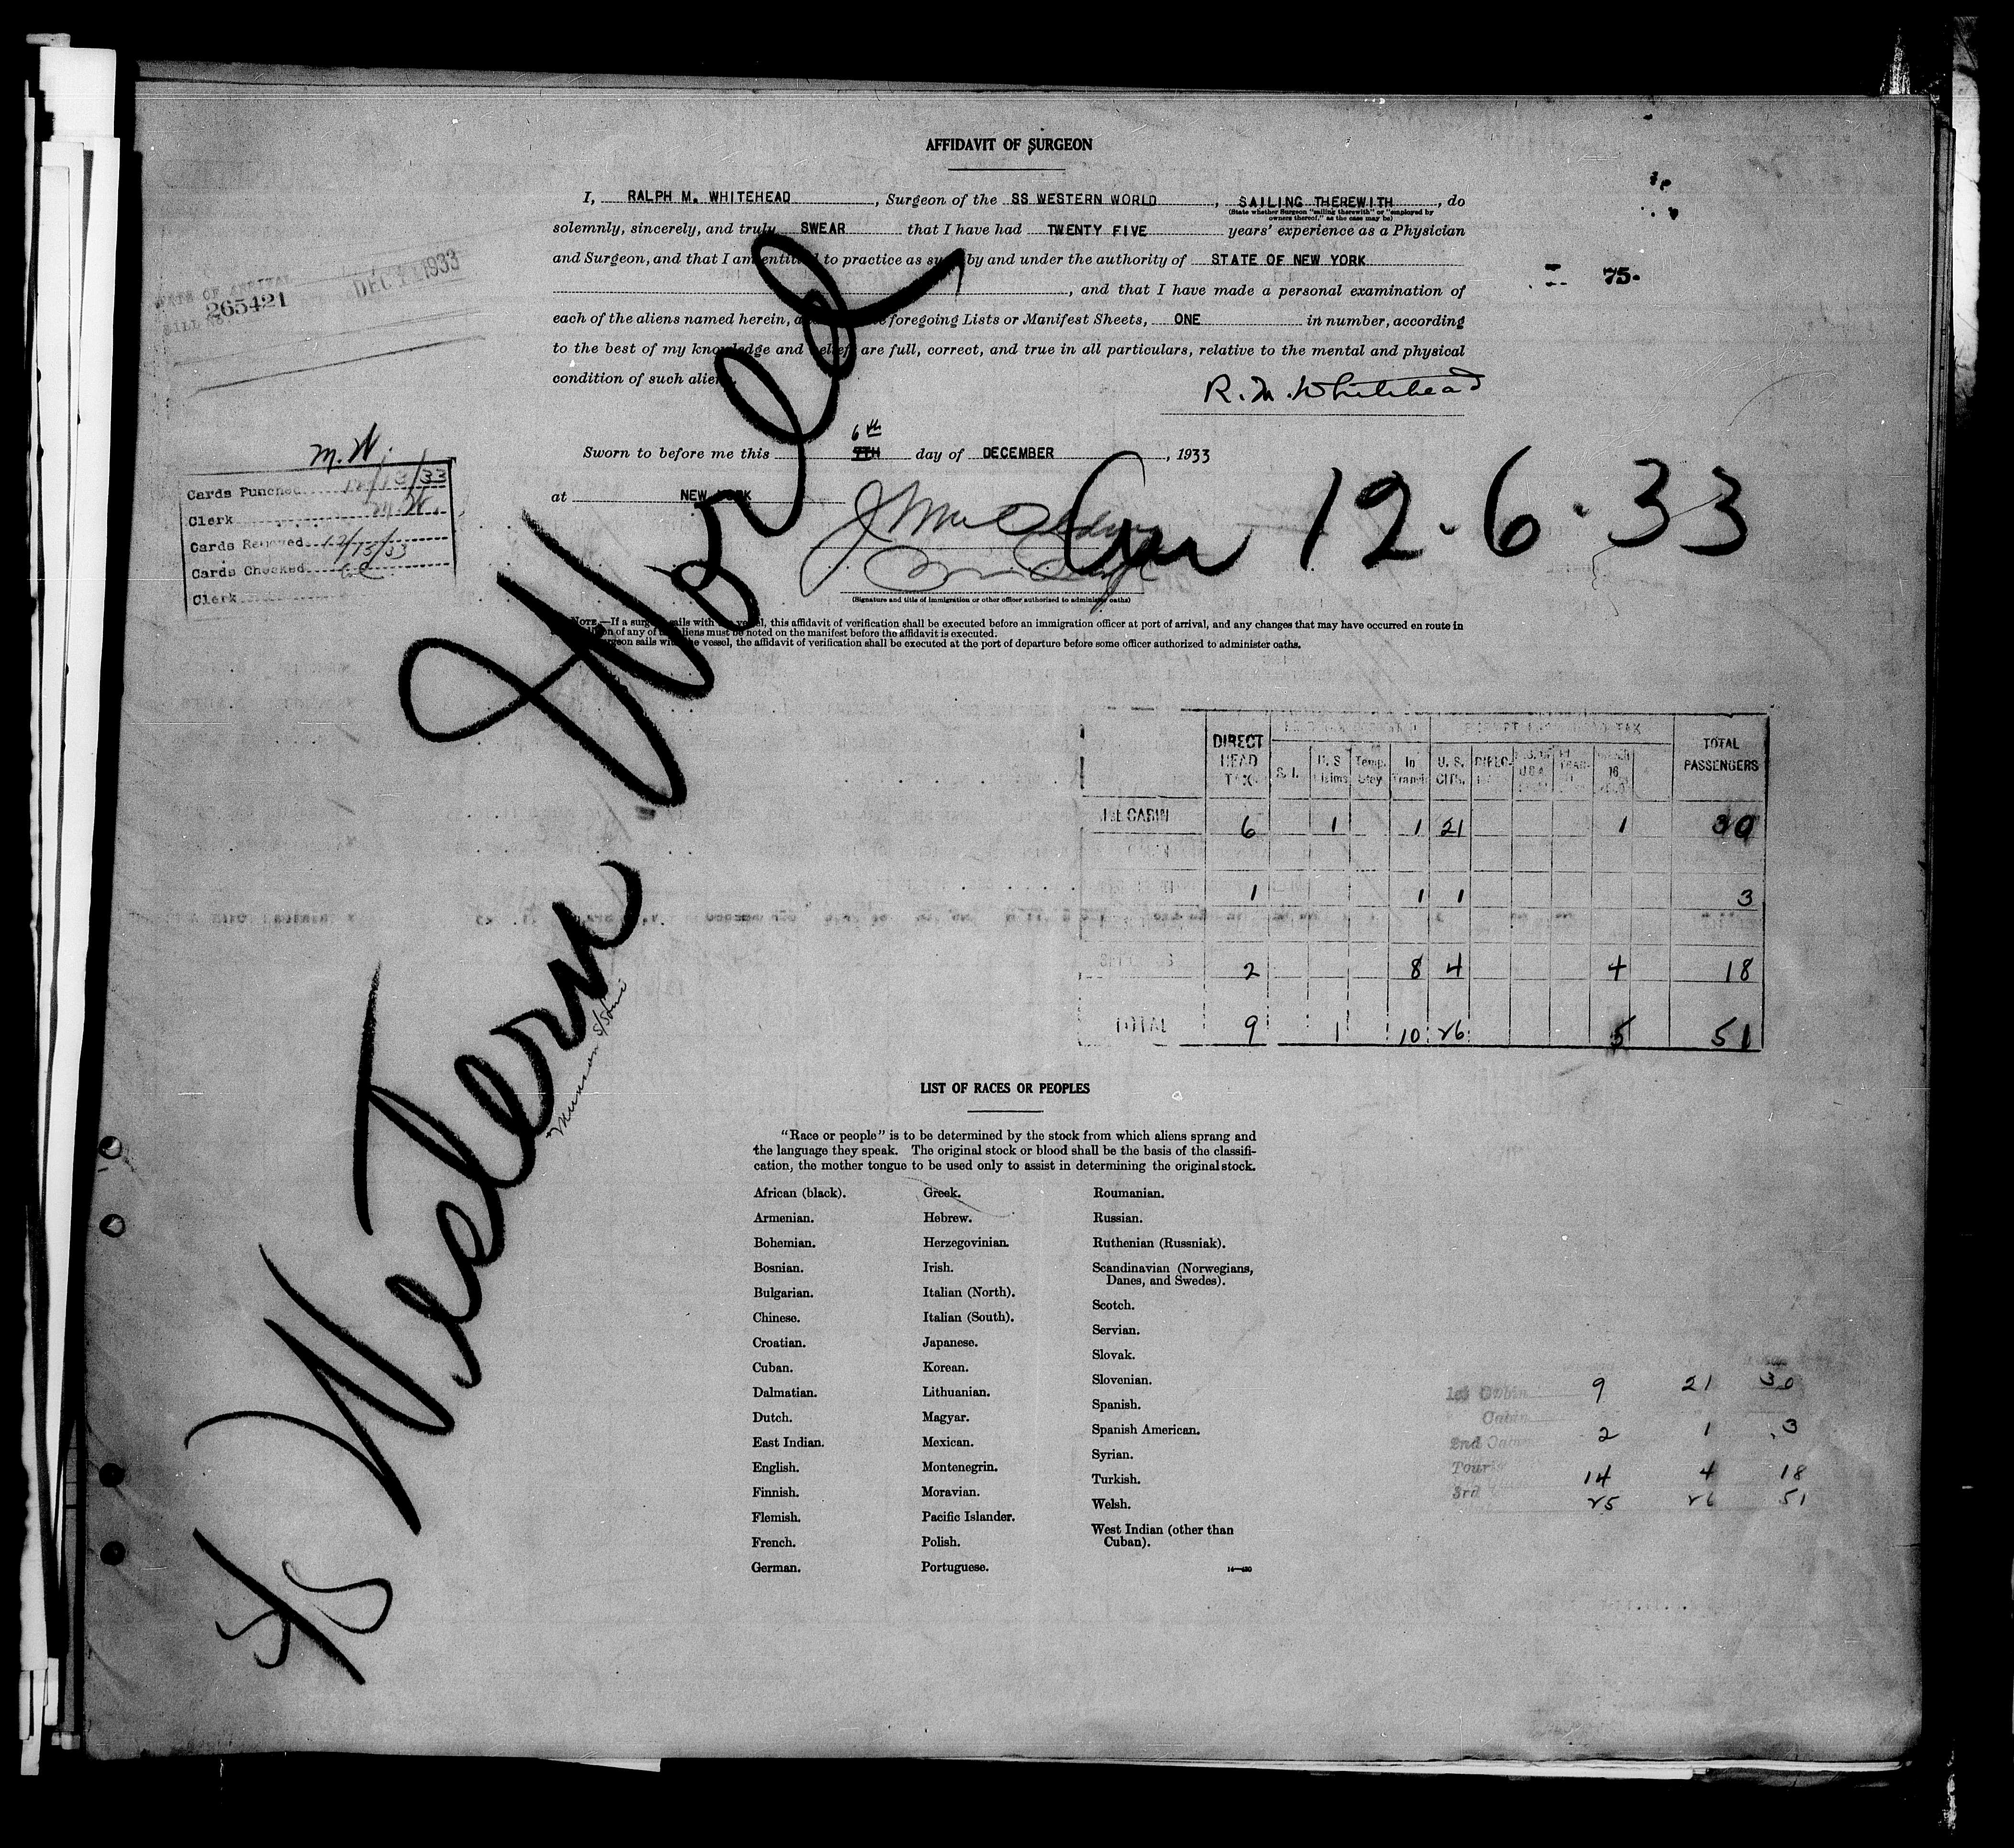 AFFIDAVIT OF SURGEON
I, RALPH M. WHITEHEAD, Surgeon of the SS WESTERN WORLD, SAILING THEREWITH, do
(State whether Surgeon "sailing therewith" or "employed by
owners thereof," as the case may be)
solemnly, sincerely, and truly SWEAR that I have had TWENTY FIVE years' experience as a Physician
and Surgeon, and that I am entitled to practice as such by and under the authority of STATE OF NEW YORK
, and that I have made a personal examination of
each of the aliens named herein, foregoing Lists or Manifest Sheets, ONE in number, according
to the best of my knowledge and belief, are full, correct, and true in all particulars, relative to the mental and physical
condition of such aliens.
R. M. Whitehead
75-
DATE OF ARRIVAL DEC 1933
265421
Sworn to before me this 7TH 6th day of DECEMBER, 1933
at NEW YORK
(Signature and title of immigration or other officer authorized to administer oaths)
12-6-33
M.W.
Cards Punched 12/13/33
Clerk M.W.
Cards Removed 12/13/33
Cards Checked
Clerk
NOTE.—If a surgeon sails with the vessel, this affidavit of verification shall be executed before an immigration officer at port of arrival, and any changes that may have occurred en route in
of any of the aliens must be noted on the manifest before the affidavit is executed.
surgeon sails with the vessel, the affidavit of verification shall be executed at the port of departure before some officer authorized to administer oaths.
S/S Western World
Munson S/S Line
DIRECT HEAD TAX S. I. U. S. Claims Temp. Stay In Transit U. S. CITS. DIPLO- 16 TOTAL PASSENGERS
1st CABIN 6 1 1 21 1 30
1 1 1 3
2 8 4 4 18
TOTAL 9 1 10 26 5 51
LIST OF RACES OR PEOPLES
"Race or people" is to be determined by the stock from which aliens sprang and
the language they speak. The original stock or blood shall be the basis of the classifi-
cation, the mother tongue to be used only to assist in determining the original stock.
African (black).
Armenian.
Bohemian.
Bosnian.
Bulgarian.
Chinese.
Croatian.
Cuban.
Dalmatian.
Dutch.
East Indian.
English.
Finnish.
Flemish.
French.
German.
Greek.
Hebrew.
Herzegovinian.
Irish.
Italian (North).
Italian (South).
Japanese.
Korean.
Lithuanian.
Magyar.
Mexican.
Montenegrin.
Moravian.
Pacific Islander.
Polish.
Portuguese.
Roumanian.
Russian.
Ruthenian (Russniak).
Scandinavian (Norwegians,
Danes, and Swedes).
Scotch.
Servian.
Slovak.
Slovenian.
Spanish.
Spanish American.
Syrian.
Turkish.
Welsh.
West Indian (other than
Cuban).
1st Cabin 9 21 30
Cabin
2nd Cabin 2 1 3
Tourist
3rd 14 4 18
25 26 51